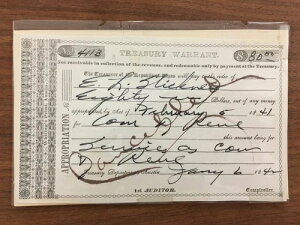 TREASURY WARRANT.
No. 4113 $80.00
Receivable in collection of the revenue, and redeemable only by payment at the Treasury.
The Treasurer of the Republic of Texas will pay to the order of
E. L.
Eighty Dollars, out of any money
appropriated by Act of February 5 1841
for Com
this amount being for
Service as Com
Treasury Department, Austin, Jany 6 184
1st. AUDITOR. Comptroller.
APPROPRIATION